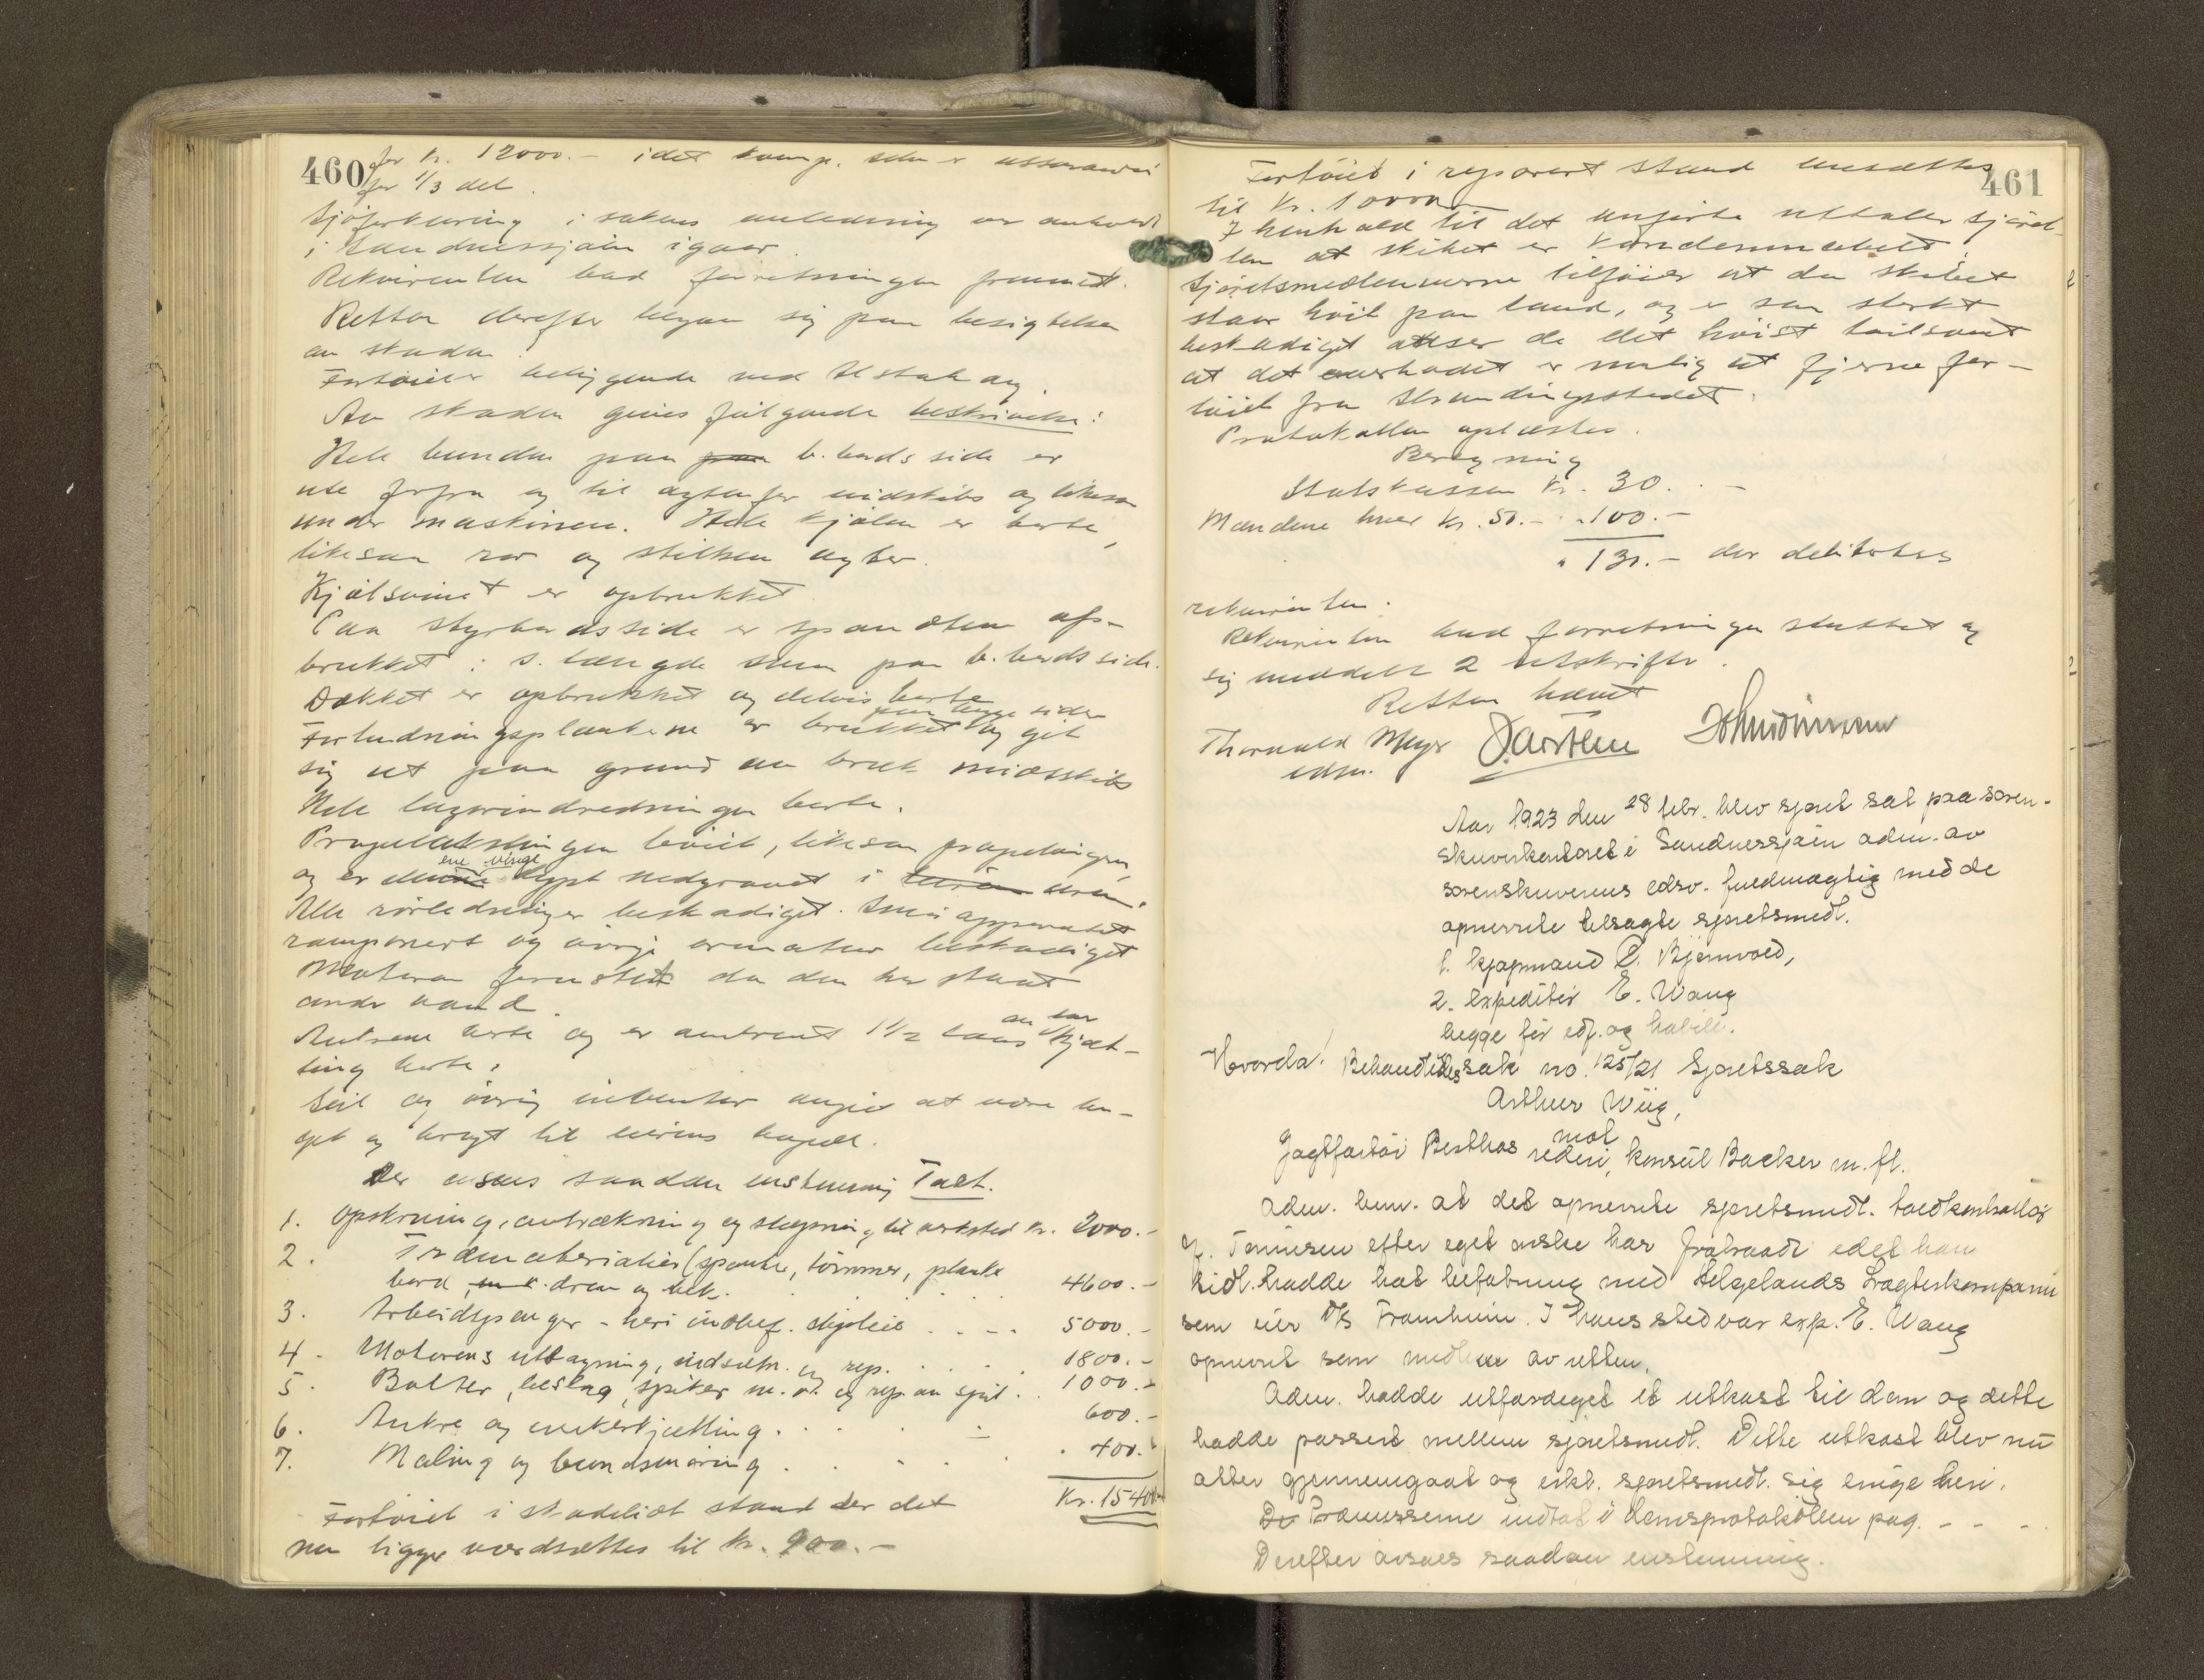 460
for kr. 12000.- idet komp. selv er assurandør
for 1/3 del.
Sjøforklaring i sakens anledning var avholdt
i Sandnessjøen igaar.
Rekvirenten bad forretningen fremmet.
Retten derefter begav sig paa besigtelse
av skaden.
Fartøiet er beliggende ved Alstahaug.
Av skaden gives følgende beskrivelse:
Hele bunden paa paa b.bords side er
ute forfra og til agtenfor midskibs og likesaa
under maskinen. Hele kjølen er borte,
likesaa ror og stilken agter.
Kjølsvinet er opbrukket.
Paa styrbords side er spanterne af-
brukket i s. længde som paa b.bords side.
Dækket er opbrukket og delvis borte
Forhudningsplankene er brukket paa begge sider og git
sig ut paa grund av bruk midtskibs
Hele lugarindredningen borte.
Propelakslingen bøiet, likesaa propelvingen,
og er denne ene vinge dypt nedgravet i uren.
Alle rørledninger beskadiget. Smøreapparatet
ramponert og øvrige armatur beskadiget
Motoren forrustet da den har staat
under vand.
Ankrene borte og er omtrent 1 1/2 kjæt-
ting borte.
Seil og øvrig inventar angies at være
og bragt til eierens
Der avsaes saadan enstemmig Takt.
1. Opskruing, avtrækning og slæpning til verksted kr. 2000.-
2. Træmaterialier (spanter, tømmer, planker
bord, drev og bek. . . . 4600.-
3. Arbeidspenger - heri indbef. slipleie . . - . 5000.-
4. Motorens uttagning, indsætn. og rep. . . . 1800.-
5. Bolter, beslag, spiker m.v. og rep. av spil . . 1000.-
6. Ankre og ankerkjætting . . . . 600.-
7. Maling og bundsmøring . . . . 400.-
Kr. 15400.-
Fartøiet i skadelidt stand der det
nu ligger værdsættes til kr. 900.-
461
Fartøiet i reparert stand ansættes
til kr. 10000.-
I henhold til det anførte uttaler sjøret-
ten at skibet er kondemnabelt.
Sjøretsmedlemmerne tilføier at da skibet
staar høit paa land, og er saa sterkt
beskadiget anser de det høist tvilsomt
at det overhodet er mulig at fjerne far-
tøiet fra strandingsstedet.
Protokollen oplæstes.
Beregning
Statskassen kr. 30. . -
Mændene hver kr. 50.- . " 100.-
" 130.- der debiteres
rekvirenten.
Rekvirenten bad forretningen sluttet og
sig meddelt 2 utskrifter.
Retten hævet
Thorvald Meyer
edsv.
Aar 1923 den 28 febr. blev sjøret sat paa soren-
skriverkontoret i Sandnessjøen adm. av
sorenskriverens edsv. fuldmægtig med de
opnævnte tilsagte sjøretsmedl.
1. kjøpmand C. Bjørnvold,
2. expeditør E. Wang
begge før edf. og habile.
Hvorda! Behandledes sak no. 125/21 Sjøretssak
Arthur Wiig,
mot
Jagtfartøi Berthas rederi, konsul Backer m. fl.
Adm. bem. at det opnævnte sjøretsmedl. toldkontrollør
J. Tønnesen efter eget ønske har fratraadt idet han
tidl. hadde hat befatning med Helgelands Dragterkompani
som eier D/S Framheim. I hans sted var exp. E. Wang
opnævnt som medlem av retten.
Adm. hadde utfærdiget et utkast til dom og dette
hadde passert mellem sjøretsmedl. Dette utkast blev nu
atter gjennemgaat og erkl. sjøretsmedl. sig enige heri.
De Præmisserne indtat i domsprotokollen pag. - - -
Derefter avsaes saadan enstemmig.